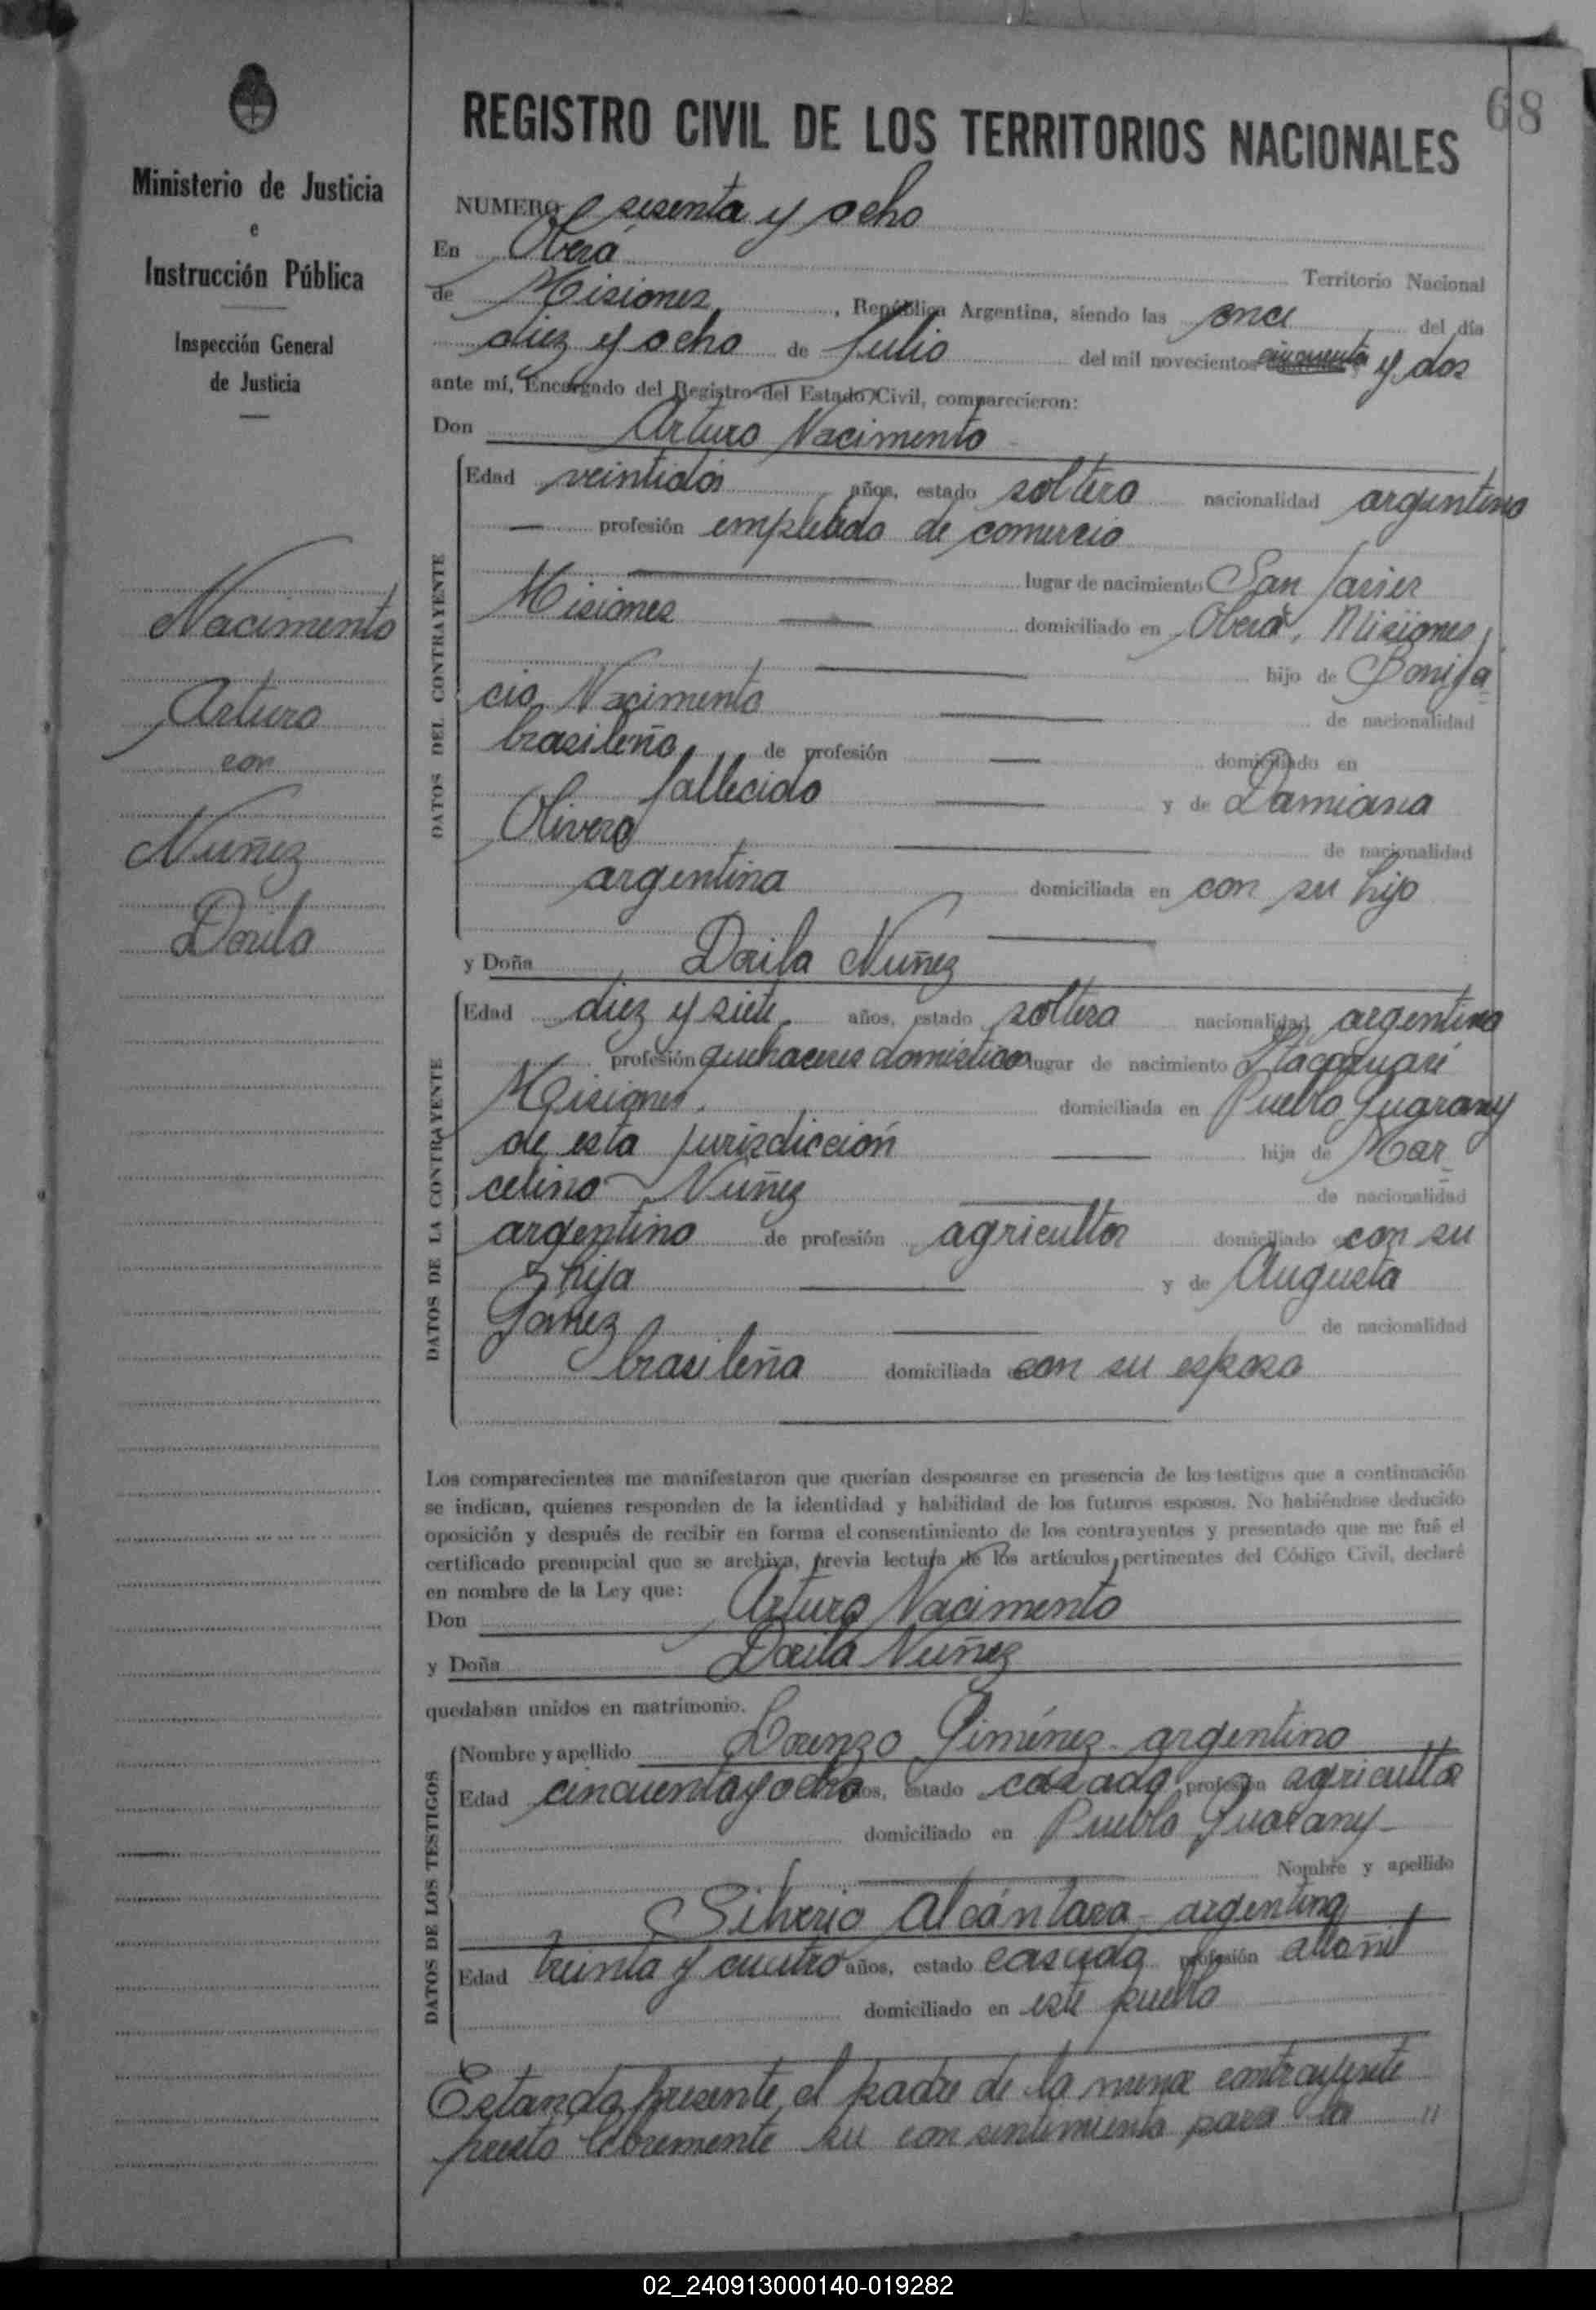 Ministerio de Justicia
e
Instrucción Pública
Inspección General
de Justicia
Nacimento
Arturo
con
Nuñez
Dorila
68
REGISTRO CIVIL DE LOS TERRITORIOS NACIONALES
NUMERO sesenta y ocho
En Oberá Territorio Nacional
de Misiones, República Argentina, siendo las once del día
diez y ocho de Julio del mil novecientos cincuenta y dos
ante mí, Encargado del Registro del Estado Civil, comparecieron:
Don Arturo Nacimento
DATOS DEL CONTRAYENTE
Edad veintidós años, estado soltero nacionalidad argentino
profesión empleado de comercio
lugar de nacimiento San Javier
Misiones domiciliado en Oberá, Misiones
hijo de Bonifa
cio Nacimento de nacionalidad
brasileño de profesión domiciliado en
fallecido y de Damiana
Olivera de nacionalidad
argentina domiciliada en con su hijo
y Doña Dorila Nuñez
DATOS DE LA CONTRAYENTE
Edad diez y siete años, estado soltera nacionalidad argentina
profesión quehaceres domésticos lugar de nacimiento Itacaruaré
Misiones domiciliada en Pueblo Guarany
de esta jurisdicción hija de Mar
celino Nuñez de nacionalidad
argentino de profesión agricultor domiciliado con su
hija y de Augusta
Gomez de nacionalidad
brasileña domiciliada con su esposo
Los comparecientes me manifestaron que querían desposarse en presencia de los testigos que a continuación
se indican, quienes responden de la identidad y habilidad de los futuros esposos. No habiéndose deducido
oposición y después de recibir en forma el consentimiento de los contrayentes y presentado que me fué el
certificado prenupcial que se archiva, previa lectura de los artículos pertinentes del Código Civil, declaré
en nombre de la Ley que:
Don Arturo Nacimento
y Doña Dorila Nuñez
quedaban unidos en matrimonio.
DATOS DE LOS TESTIGOS
Nombre y apellido Lorenzo Giménez argentino
Edad cincuenta y ocho años, estado casado profesión agricultor
domiciliado en Pueblo Guarany
Nombre y apellido
Silverio Alcántara argentino
Edad treinta y cuatro años, estado casado profesión albañil
domiciliado en este pueblo
Estando presente el padre de la menor contrayente
presto libremente su consentimiento para la "
02_240913000140-019282